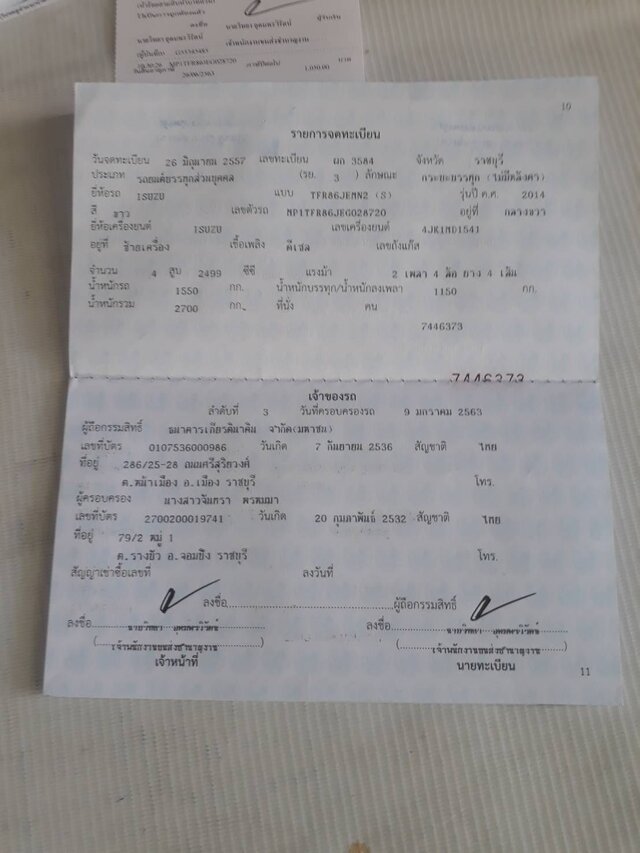 ลงชื่อ นายวิทยา อุดมพรวิรัตน์ ผู้รับเงิน
เจ้าพนักงานขนส่งชำนาญงาน
MP1TFR86JEG028720
1,030.00 บาท
26/06/2563
10
รายการจดทะเบียน
วันจดทะเบียน 26 มิถุนายน 2557 เลขทะเบียน ผก 3584 จังหวัด ราชบุรี
ประเภท รถยนต์บรรทุกส่วนบุคคล (รย. 3 ) ลักษณะ กระบะบรรทุก (ไม่มีหลังคา)
ยี่ห้อรถ ISUZU แบบ TFR86JEMN2 (S) รุ่นปี ค.ศ. 2014
สี ขาว เลขตัวรถ MP1TFR86JEG028720 อยู่ที่ กลางขวา
ยี่ห้อเครื่องยนต์ ISUZU เลขเครื่องยนต์ 4JK1ND1541
อยู่ที่ ซ้ายเครื่อง เชื้อเพลิง ดีเซล เลขถังแก๊ส
จำนวน 4 สูบ 2499 ซีซี แรงม้า 2 เพลา 4 ล้อ ยาง 4 เส้น
น้ำหนักรถ 1550 กก. น้ำหนักบรรทุก/น้ำหนักลงเพลา 1150 กก.
น้ำหนักรวม 2700 กก. ที่นั่ง คน
7446373
7446373
เจ้าของรถ
ลำดับที่ 3 วันที่ครอบครองรถ 9 มกราคม 2563
ผู้ถือกรรมสิทธิ์ ธนาคารเกียรตินาคิน จำกัด(มหาชน)
เลขที่บัตร 0107536000986 วันเกิด 7 กันยายน 2536 สัญชาติ ไทย
ที่อยู่ 286/25-28 ถนนศรีสุริยวงศ์
ต.หน้าเมือง อ.เมือง ราชบุรี โทร.
ผู้ครอบครอง นางสาวจันทรา พรหมมา
เลขที่บัตร 2700200019741 วันเกิด 20 กุมภาพันธ์ 2532 สัญชาติ ไทย
ที่อยู่ 79/2 หมู่ 1
ต.รางบัว อ.จอมบึง ราชบุรี โทร.
สัญญาเช่าซื้อเลขที่ ลงวันที่
ลงชื่อ ผู้ถือกรรมสิทธิ์
ลงชื่อ นายวิทยา อุดมพรวิรัตน์ ลงชื่อ นายวิทยา อุดมพรวิรัตน์
( เจ้าพนักงานขนส่งชำนาญงาน ) ( เจ้าพนักงานขนส่งชำนาญงาน )
เจ้าหน้าที่ นายทะเบียน
11